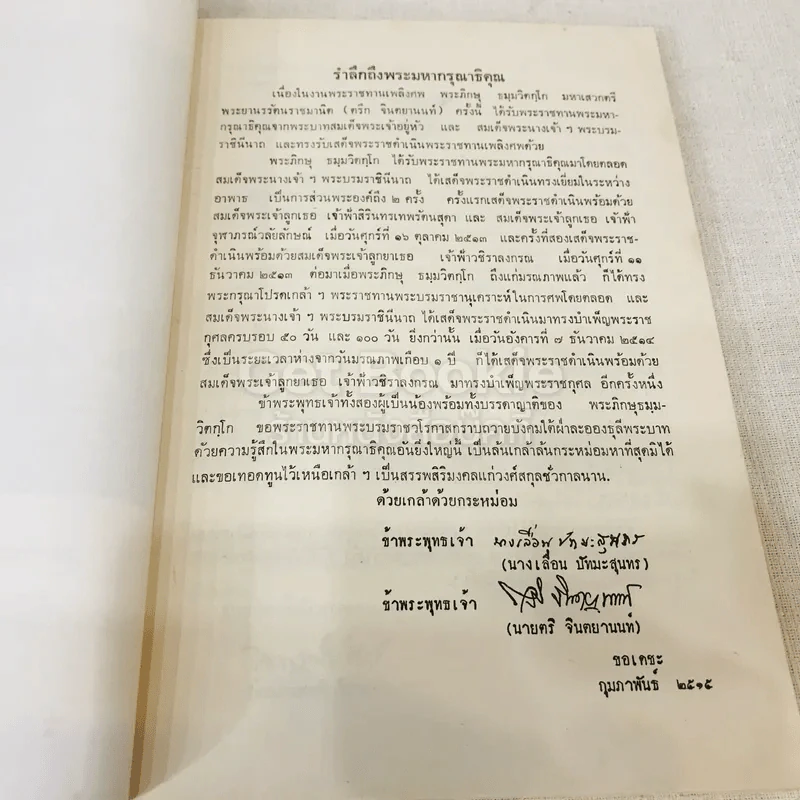 รำลึกถึงพระมหากรุณาธิคุณ
เนื่องในงานพระราชทานเพลิงศพ พระภิกษุ ธมฺมวิตกฺโก มหาเสวกตรี
พระยานรรัตนราชมานิต (ตรึก จินตยานนท์) ครั้งนี้ ได้รับพระราชทานพระมหา-
กรุณาธิคุณจากพระบาทสมเด็จพระเจ้าอยู่หัว และ สมเด็จพระนางเจ้า ฯ พระบรม-
ราชินีนาถ และทรงรับเสด็จพระราชดำเนินพระราชทานเพลิงศพด้วย
พระภิกษุ ธมฺมวิตกฺโก ได้รับพระราชทานพระมหากรุณาธิคุณมาโดยตลอด
สมเด็จพระนางเจ้า ฯ พระบรมราชินีนาถ ได้เสด็จพระราชดำเนินทรงเยี่ยมในระหว่าง
อาพาธ เป็นการส่วนพระองค์ถึง ๒ ครั้ง ครั้งแรกเสด็จพระราชดำเนินพร้อมด้วย
สมเด็จพระเจ้าลูกเธอ เจ้าฟ้าสิรินทรเทพรัตนสุดา และ สมเด็จพระเจ้าลูกเธอ เจ้าฟ้า
จุฬาภรณ์วลัยลักษณ์ เมื่อวันศุกร์ที่ ๑๖ ตุลาคม ๒๕๑๓ และครั้งที่สองเสด็จพระราช-
ดำเนินพร้อมด้วยสมเด็จพระเจ้าลูกยาเธอ เจ้าฟ้าวชิราลงกรณ เมื่อวันศุกร์ที่ ๑๑
ธันวาคม ๒๕๑๓ ต่อมาเมื่อพระภิกษุ ธมฺมวิตกฺโก ถึงแก่มรณภาพแล้ว ก็ได้ทรง
พระกรุณาโปรดเกล้า ฯ พระราชทานพระบรมราชานุเคราะห์ในการศพโดยตลอด และ
สมเด็จพระนางเจ้า ฯ พระบรมราชินีนาถ ได้เสด็จพระราชดำเนินมาทรงบำเพ็ญพระราช
กุศลครบรอบ ๕๐ วัน และ ๑๐๐ วัน ยิ่งกว่านั้น เมื่อวันอังคารที่ ๗ ธันวาคม ๒๕๑๔
ซึ่งเป็นระยะเวลาห่างจากวันมรณภาพเกือบ ๑ ปี ก็ได้เสด็จพระราชดำเนินพร้อมด้วย
สมเด็จพระเจ้าลูกยาเธอ เจ้าฟ้าวชิราลงกรณ มาทรงบำเพ็ญพระราชกุศล อีกครั้งหนึ่ง
ข้าพระพุทธเจ้าทั้งสองผู้เป็นน้องพร้อมทั้งบรรดาญาติของ พระภิกษุธมฺม-
วิตกฺโก ขอพระราชทานพระบรมราชวโรกาสกราบถวายบังคมใต้ฝ่าละอองธุลีพระบาท
ด้วยความรู้สึกในพระมหากรุณาธิคุณอันยิ่งใหญ่นี้ เป็นล้นเกล้าล้นกระหม่อมหาที่สุดมิได้
และขอเทอดทูนไว้เหนือเกล้า ฯ เป็นสรรพสิริมงคลแก่วงศ์สกุลชั่วกาลนาน.
ด้วยเกล้าด้วยกระหม่อม
ข้าพระพุทธเจ้า นางเลื่อน ปัทมะสุนทร
(นางเลื่อน ปัทมะสุนทร)
ข้าพระพุทธเจ้า
(นายตริ จินตยานนท์)
ขอเดชะ
กุมภาพันธ์ ๒๕๑๕